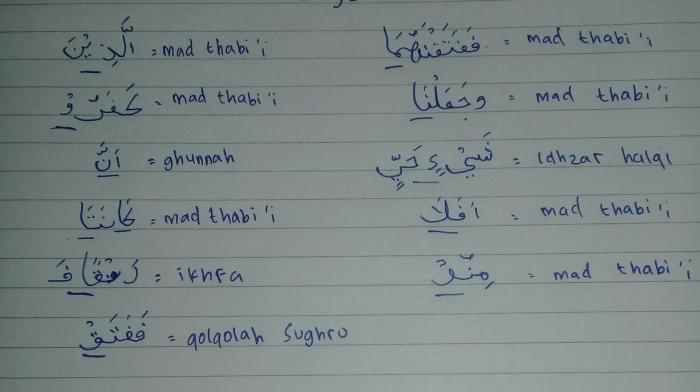 الَّذِيْنَ = mad thabi'i
كَفَرُوْ = mad thabi'i
اَنَّ = ghunnah
كَانَتَا = mad thabi'i
رَتْقًا فَ = ikhfa
فَفَتَقْ = qolqolah sughro
فَفَتَقْنٰهُمَا = mad thabi'i
وَجَعَلْنَا = mad thabi'i
شَيْءٍ حَيٍّ = Idhzar halqi
اَفَلَا = mad thabi'i
= mad thabi'i